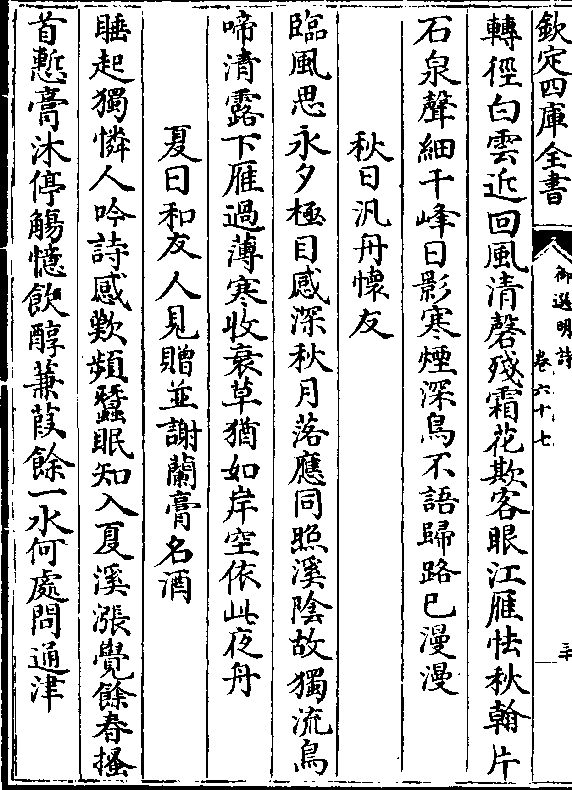 欽定四庫全書
御選明詩
卷六十七
三十
轉徑白雲近回風清磬殘霜花欺客眼江雁怯秋翰片
石泉聲細千峰日影寒煙深鳥不語歸路已漫漫
秋日汎舟懷友
臨風思永夕極目感深秋月落應同照溪陰故獨流烏
啼清露下雁過薄寒收衰草猶如岸空依此夜舟
夏日和友人見贈並謝蘭膏名酒
睡起獨憐人吟詩感歎頻蠶眠知入夏溪漲覺餘春搔
首慙膏沐停觴憶飲醇蒹葭餘一水何處問通津